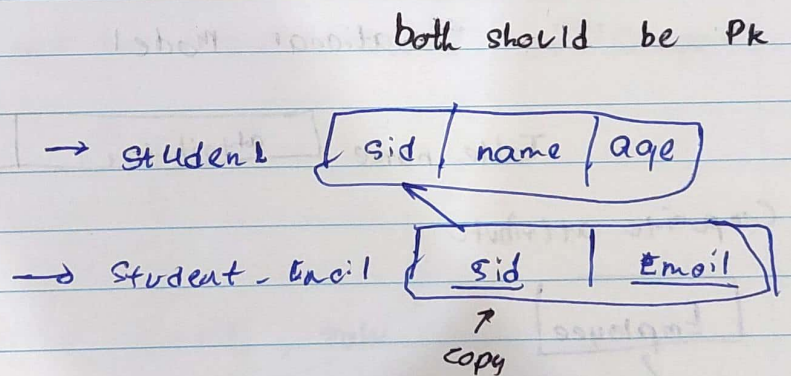 both should be Pk
→ Student sid name age
→ Student - Email sid Email
copy